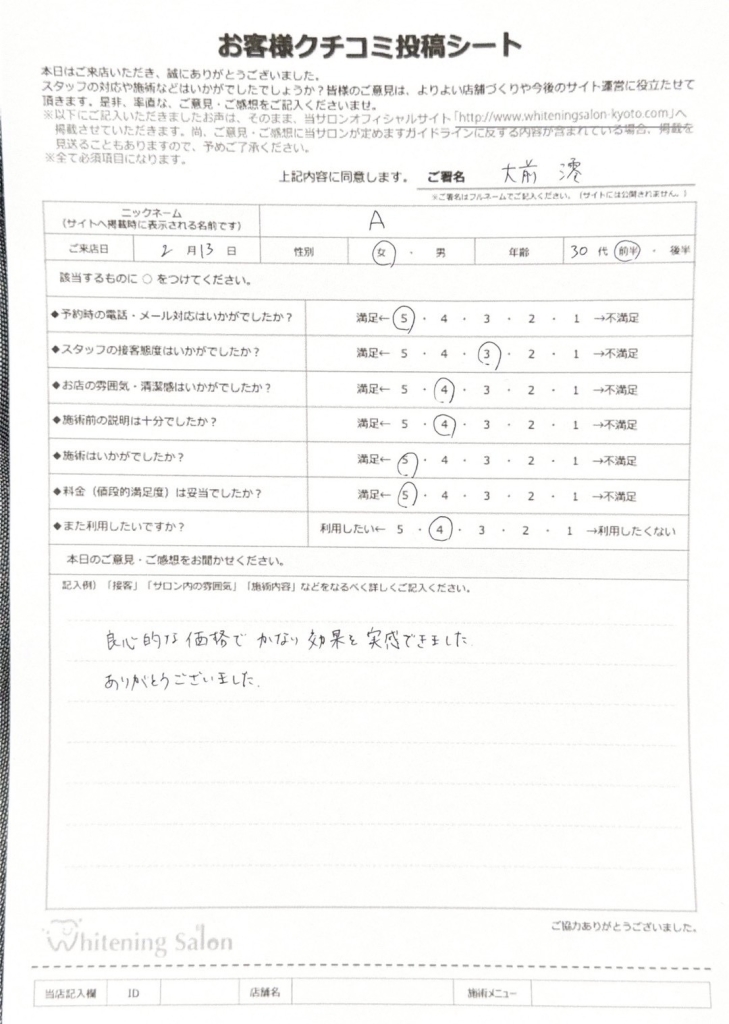 お客様クチコミ投稿シート
本日はご来店いただき、誠にありがとうございました。
スタッフの対応や施術などはいかがでしたでしょうか？皆様のご意見は、よりよい店舗づくりや今後のサイト運営に役立たせて
頂きます。是非、率直な、ご意見・ご感想をご記入くださいませ。
※以下にご記入いただきましたお声は、そのまま、当サロンオフィシャルサイト「http://www.whiteningsalon-kyoto.com」へ
掲載させていただきます。尚、ご意見・ご感想に当サロンが定めますガイドラインに反する内容が含まれている場合、掲載を
見送ることもありますので、予めご了承ください。
※全て必須項目になります。
上記内容に同意します。 ご署名 大前 澪
※ご署名はフルネームでご記入ください。（サイトには公開されません。）
ニックネーム
（サイトへ掲載時に表示される名前です） A
ご来店日 2 月 13 日 性別 女 ・ 男 年齢 30 代 前半 ・ 後半
該当するものに ○ をつけてください。
◆予約時の電話・メール対応はいかがでしたか？ 満足← 5 ・ 4 ・ 3 ・ 2 ・ 1 →不満足
◆スタッフの接客態度はいかがでしたか？ 満足← 5 ・ 4 ・ 3 ・ 2 ・ 1 →不満足
◆お店の雰囲気・清潔感はいかがでしたか？ 満足← 5 ・ 4 ・ 3 ・ 2 ・ 1 →不満足
◆施術前の説明は十分でしたか？ 満足← 5 ・ 4 ・ 3 ・ 2 ・ 1 →不満足
◆施術はいかがでしたか？ 満足← 5 ・ 4 ・ 3 ・ 2 ・ 1 →不満足
◆料金（値段的満足度）は妥当でしたか？ 満足← 5 ・ 4 ・ 3 ・ 2 ・ 1 →不満足
◆また利用したいですか？ 利用したい← 5 ・ 4 ・ 3 ・ 2 ・ 1 →利用したくない
本日のご意見・ご感想をお聞かせください。
記入例）「接客」「サロン内の雰囲気」「施術内容」などをなるべく詳しくご記入ください。
良心的な価格で かなり効果を実感できました.
ありがとうございました.
ご協力ありがとうございました。
Whitening Salon
当店記入欄 ID 店舗名 施術メニュー